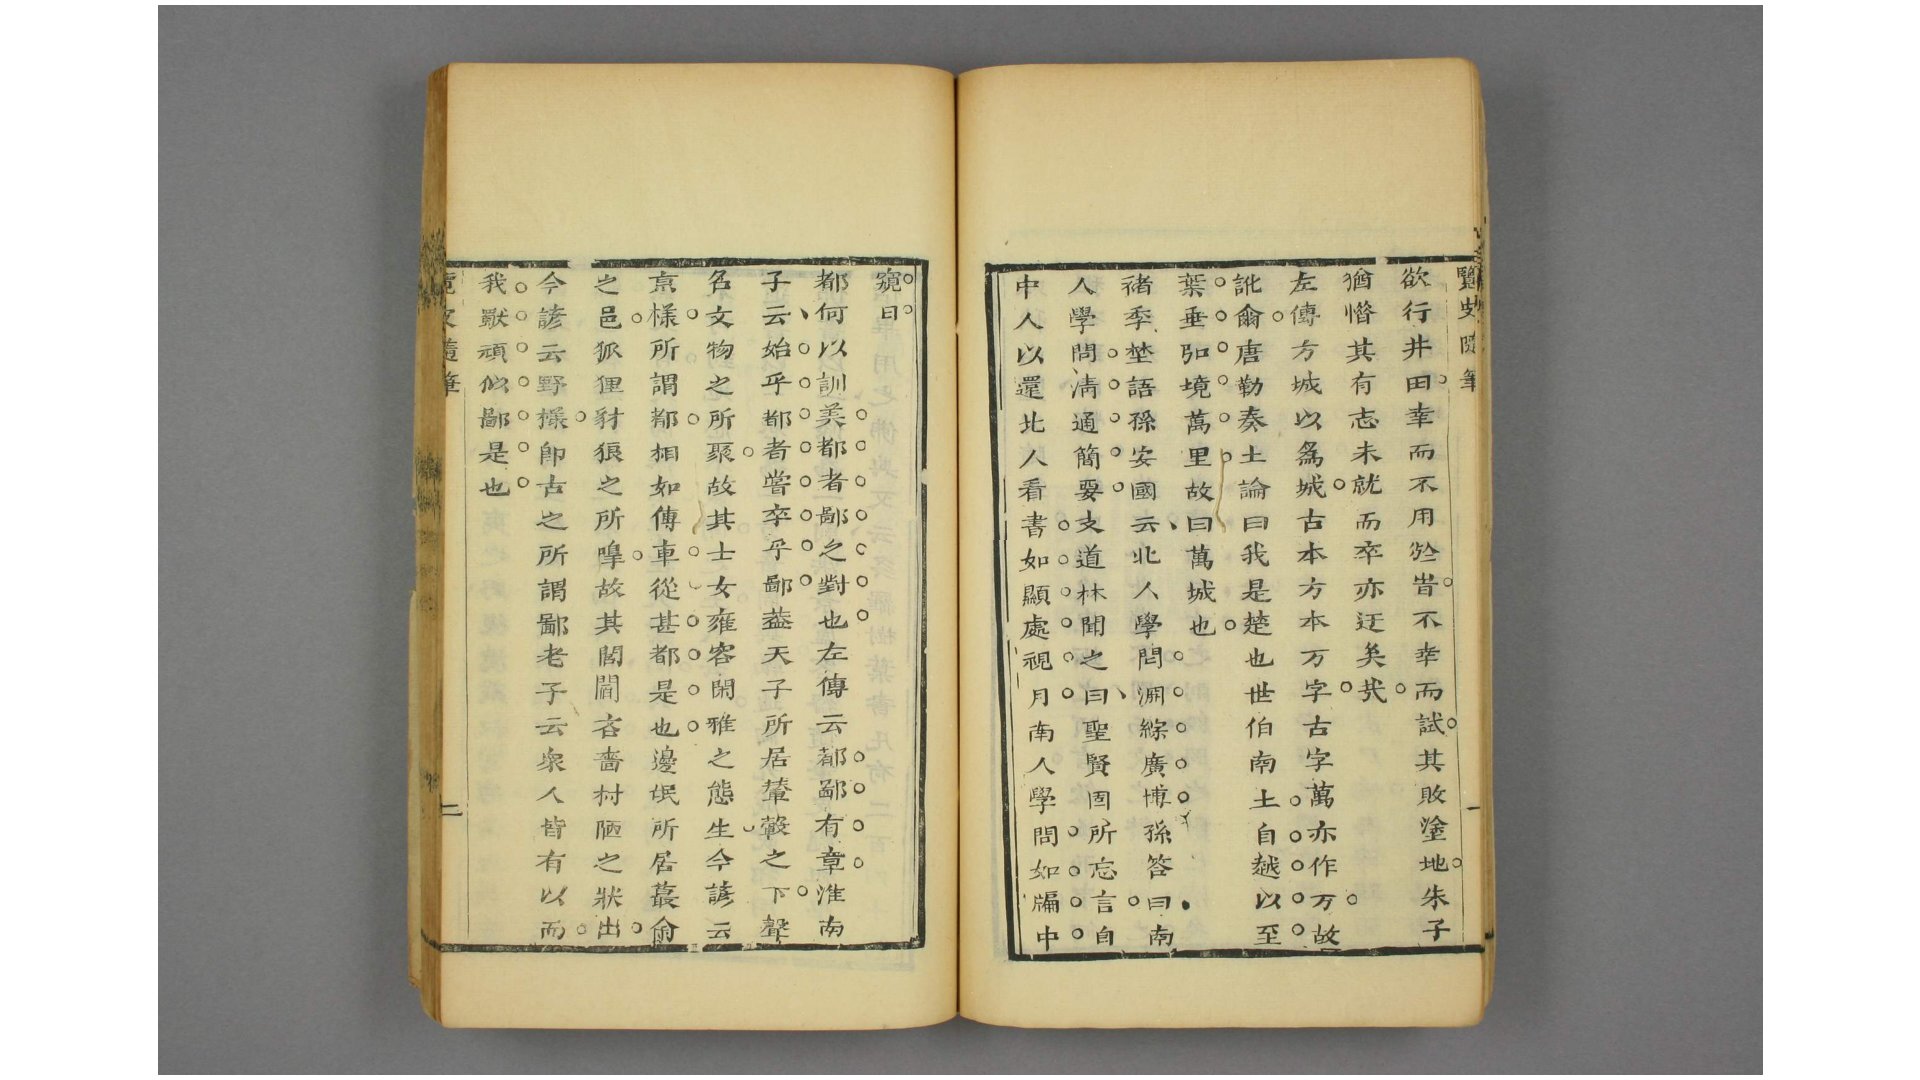 覽史隨筆 一
欲行井田幸而不用於昔不幸而試其敗塗地朱子
猶惜其有志未就而卒亦迂矣㢤
左傳方城以爲城古本方本万字古字萬亦作万故
訛爾唐勒奏土論曰我是楚也世伯南土自越以至
葉垂弘境萬里故曰萬城也
禇季埜語孫安國云北人學問淵綜廣博孫答曰南
人學問清通簡要支道林聞之曰聖賢固所忘言自
中人以還北人看書如顯處視月南人學問如牖中
窺日
都何以訓美都者鄙之對也左傳云都鄙有章淮南
子云始乎都者嘗卒乎鄙葢天子所居輦轂之下聲
名文物之所聚故其士女雍容閑雅之態生今諺云
京様所謂都相如傳車從甚都是也邊氓所居蕞爾
之邑狐狸豺狼之所嘷故其閭閻吝嗇村陋之狀出
今諺云野樣卽古之所謂鄙老子云衆人皆有以而
我獸頑似鄙是也
覽史隨筆 二